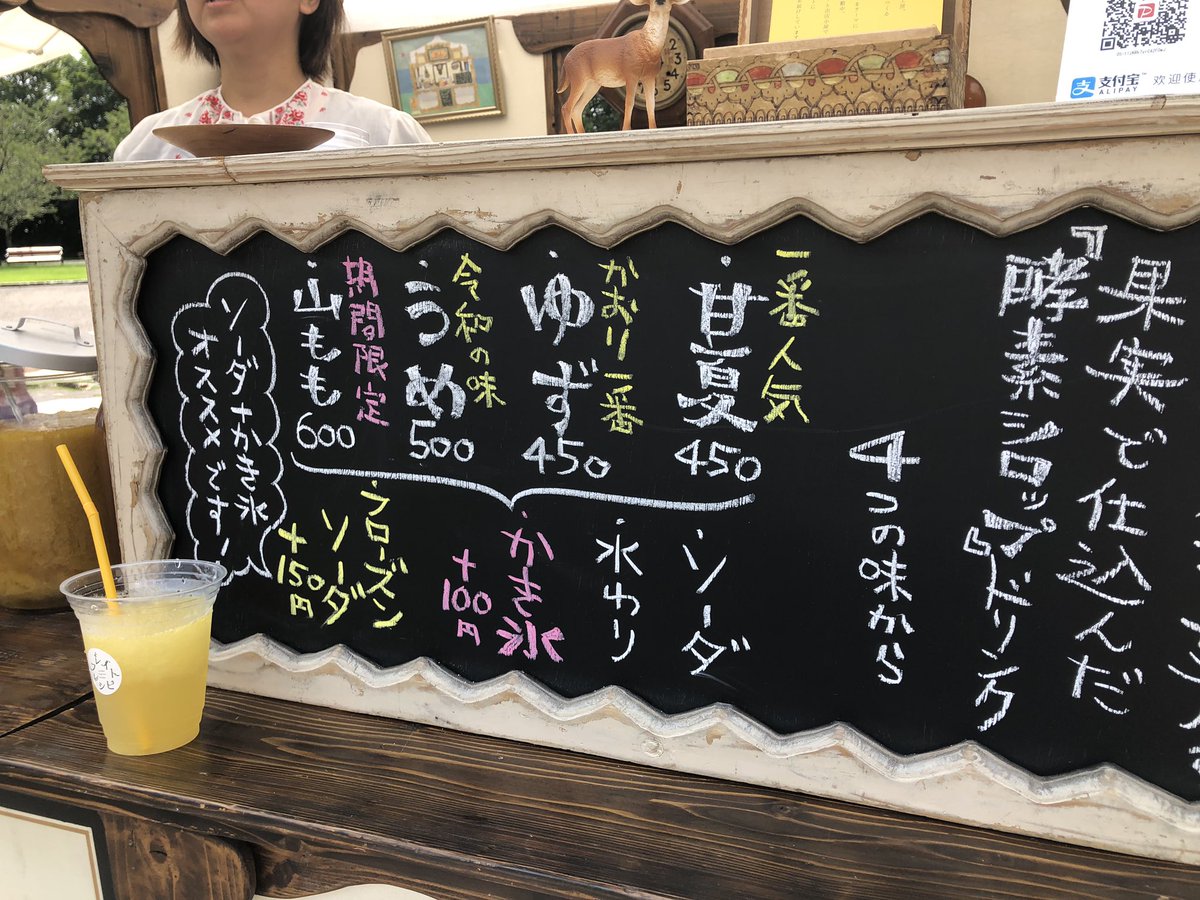 果実で仕込んだ
『酵素シロップ』ドリンク
4つの味から
一番人気
・甘夏
450
かおり一番
・ゆず
450
令和の味
・うめ
500
期間限定
・山もも
600
・ソーダ
・水わり
・かき氷
+100円
・フローズン
ソーダ
+150円
ソーダかき氷
オススメです!
支付宝™
ALIPAY
欢迎使